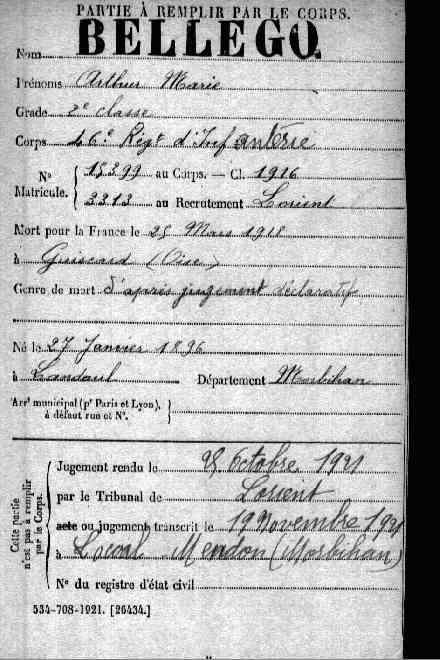 PARTIE À REMPLIR PAR LE CORPS.
Nom BELLEGO
Prénoms Arthur Marie
Grade 2e classe
Corps 46e Régt d'Infanterie
No Matricule. 15399 au Corps. — Cl. 1916
3313 au Recrutement Lorient
Mort pour la France le 25 Mars 1918
à Guiscard (Oise)
Genre de mort D'après jugement déclaratif
Né le 27 Janvier 1896
à Landaul Département Morbihan
Arrt municipal (pr Paris et Lyon), à défaut rue et No.
Cette partie n'est pas à remplir par le Corps.
Jugement rendu le 28 Octobre 1921
par le Tribunal de Lorient
acte ou jugement transcrit le 19 Novembre 1921
à Locoal-Mendon (Morbihan)
No du registre d'état civil
534-708-1921. [26434.]